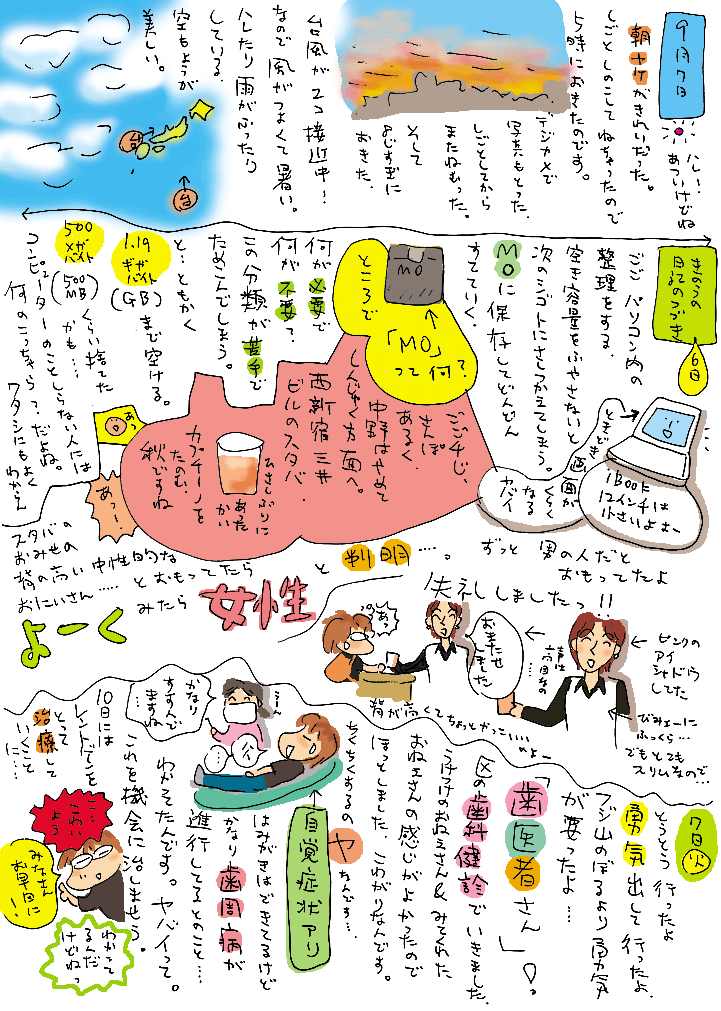 9月7日
ハレ!
あついけどね
朝ヤケがきれいだった。
しごとしのこしてねちゃったので
5時におきたのです。
デジカメで
写真もとった。
しごとしてから
またねむった。
そして
おきた。
台風が2コ接近中!
なので風がつよくて暑い。
ハレたり雨がふったり
している。
空もようが
美しい。
台
台
きのうの
日記のつづき
6日
ごごパソコン内の
整理をする。
空き容量をふやさないと
次のシゴトにさしつかえてしまう。
MOに保存してどんどん
すてていく。
ときどき
画面が
くらく
なる
ヤバイ
iBOOK
12インチは
小さいよォ〜
MO
ところで
「MO」
って何?
何が必要で
何が不要て、
この分類が苦手で
ためこんでしまう。
と…ともかく
1.19
ギガ
バイト
(GB)
まで空ける。
500
メガ
バイト
(500MB)
くらい捨てた
かも…
コンピューターのことしらない人には
何のこっちゃら?だよね。
ワタシにもよく
わからん
ごご4じ、
さんぽ
あるく。
中野はやめて
しんじゅく方面へ。
西新宿三井
ビルのスタバ
ひさしぶりに
あたた
かい
カプチーノを
たのむ。
秋ですね
あっ
あっー
スタバの
おみせの
背の高い中性的な
おにいさん……
とおもってたら
よーく
みたら
女性
と判明…。
ずっと男の人だと
おもってたよ
失礼しましたっ!!
あっ
おまたせ
しました
声は
高目なの
ピンクの
アイ
シャドウ
してた
びみょーに
ふっくら…
でもとても
スリムなので…
背が高くてちょっとかっこいいのよー
7日(火)
とうとう行ったよ
勇気出して行ったよ。
フジ山のぼるより勇気
が要ったよ…
「歯医者さん」!。
区の歯科健診でいきました。
うけつけのおねえさん&みてくれた
おねエさんの感じがよかったので
ほっとしました。こわがりなんです。
ちくちくするのヤなんです…
自覚症状アリ
かなり
すすんで
ますね
うーん
はみがきはできてるけど
かなり歯周病が
進行してるとのこと…
わかってたんです。ヤバイって。
これを機会に治しましょう。
10日には
レントゲンを
とって
治療して
いくこと
に…
こ…
こわい
よう
みなさん
お早目に
!
わかって
るんだ
けどねっ